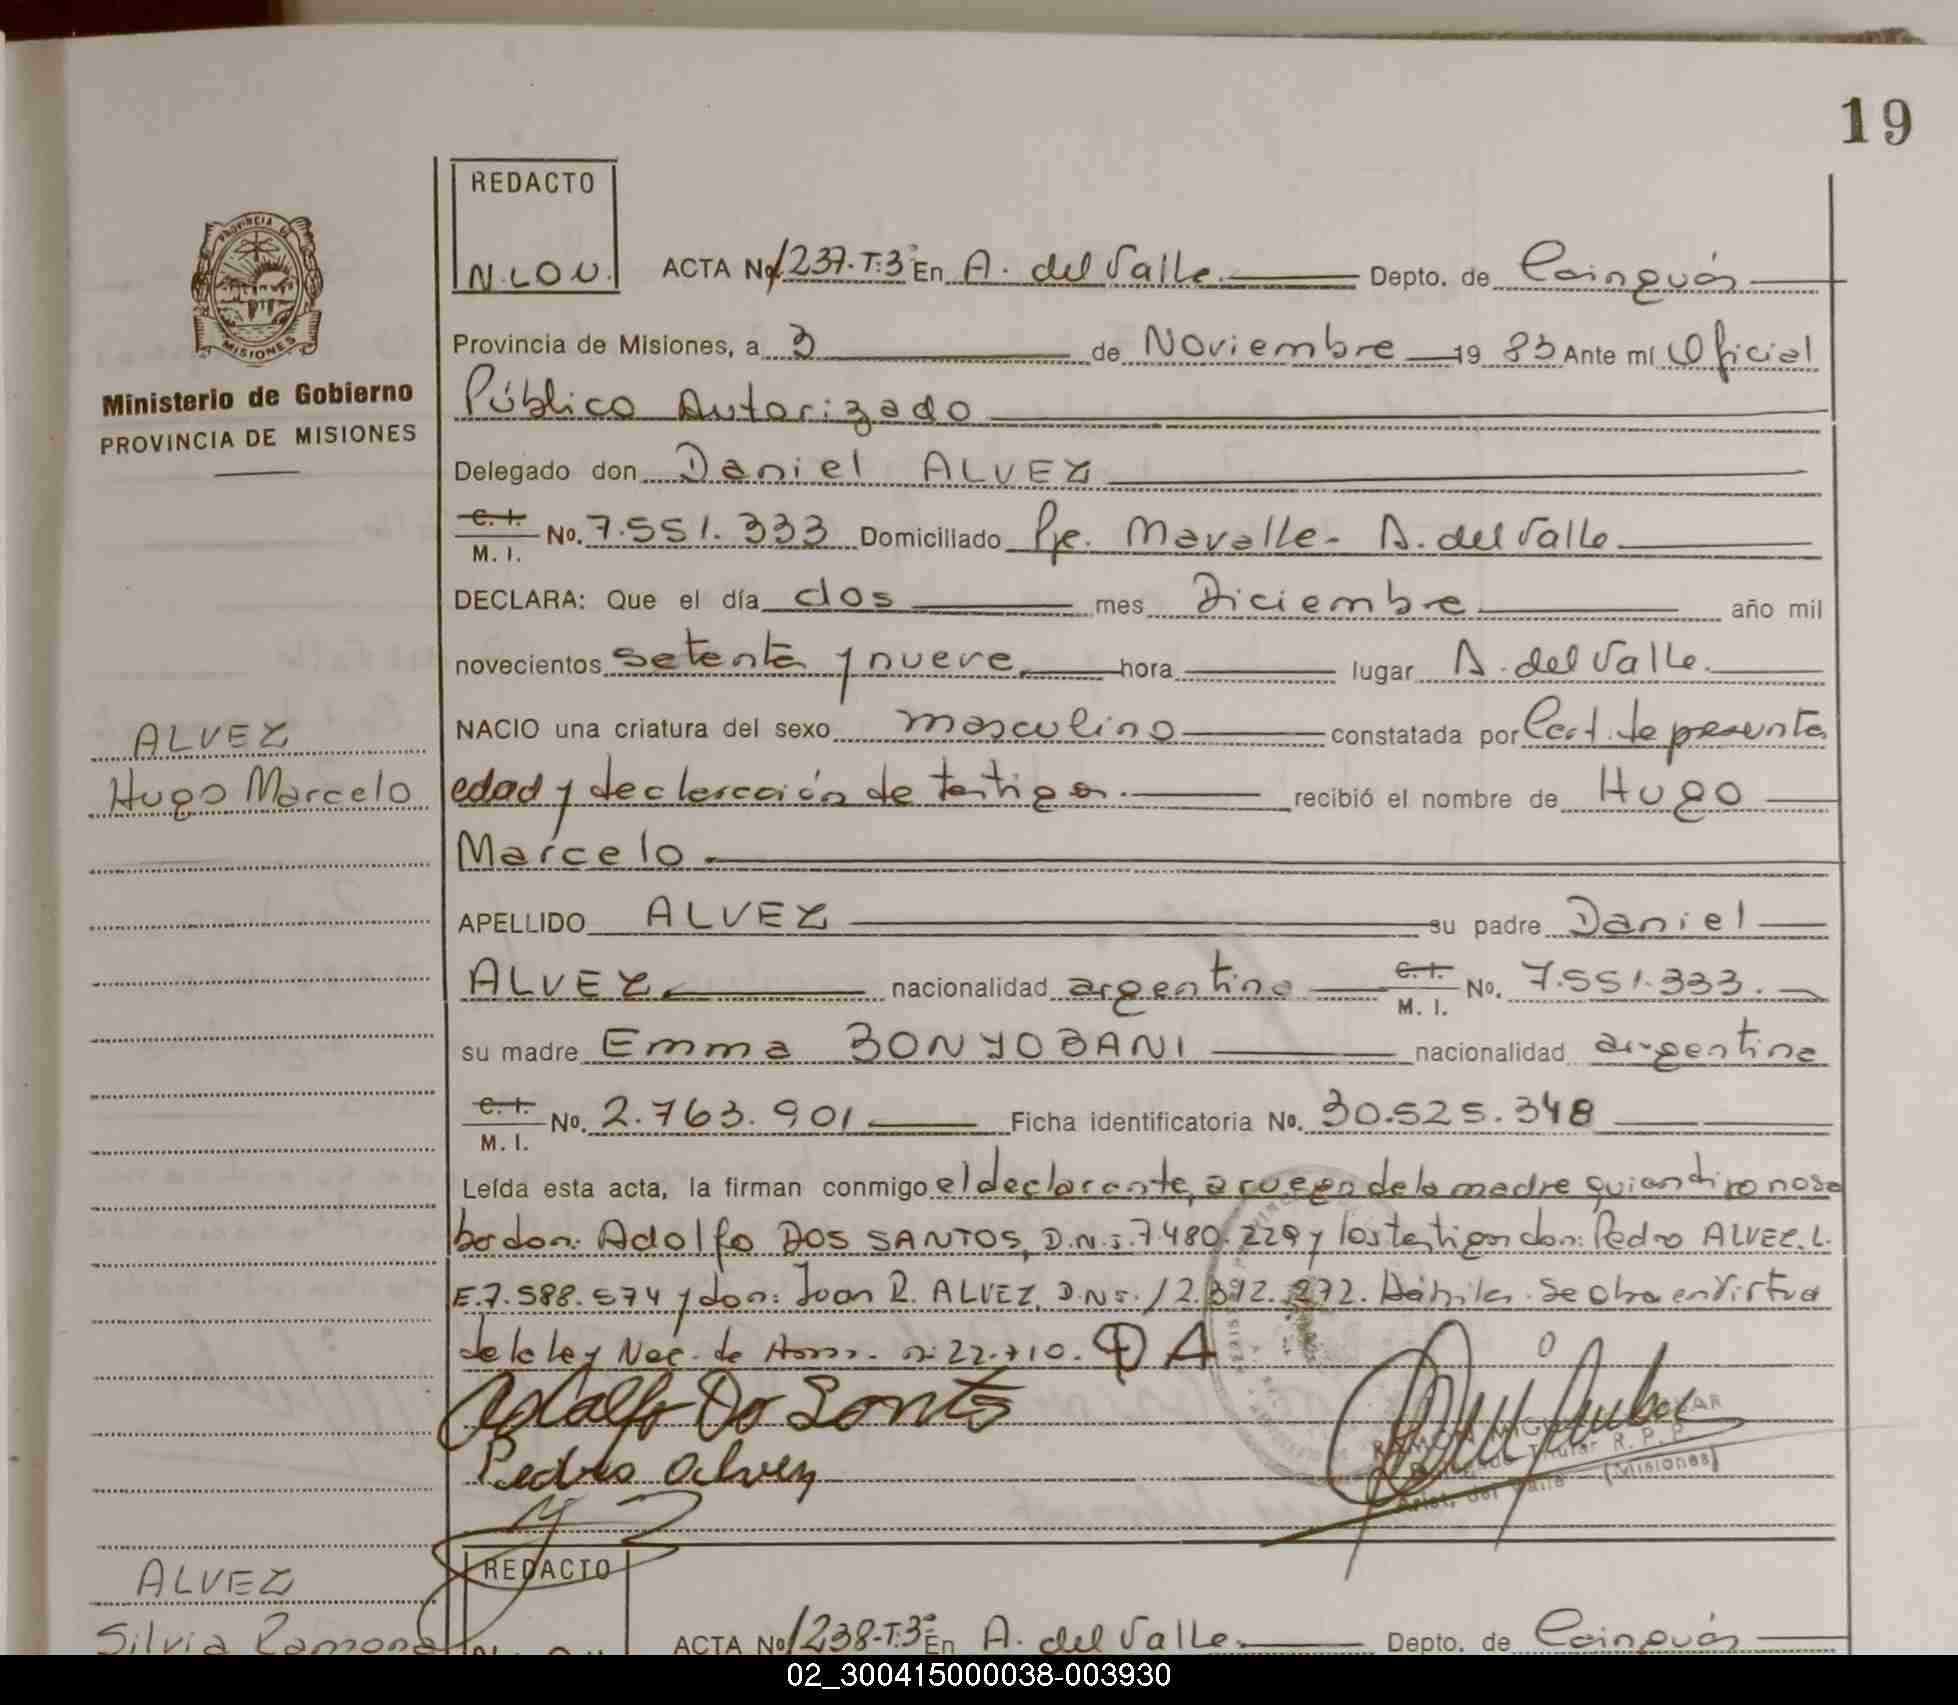 19
REDACTO
N.LOU.
ACTA No 1237-T:3° En A. del Valle Depto. de Cainguás
PROVINCIA DE
MISIONES
Ministerio de Gobierno
PROVINCIA DE MISIONES
Provincia de Misiones, a 3 de Noviembre 19 83 Ante mí Oficial
Público Autorizado
Delegado don Daniel ALVEZ
C. I. / M. I. No. 7.551.333 Domiciliado Pje. Mavalle - A. del Valle
DECLARA: Que el día dos mes Diciembre año mil
novecientos setenta y nueve hora lugar A. del Valle.
NACIO una criatura del sexo masculino constatada por Cert. de presunta
ALVEZ
Hugo Marcelo
edad y declaración de testigos. recibió el nombre de Hugo
Marcelo.
APELLIDO ALVEZ su padre Daniel
ALVEZ nacionalidad argentino C. I. / M. I. No. 7.551.333.
su madre Emma BONYOBANI nacionalidad argentina
C. I. / M. I. No. 2.763.901 Ficha identificatoria No. 30.525.348
Leída esta acta, la firman conmigo el declarante, a ruego de la madre quien dijo no sa
ber don: Adolfo DOS SANTOS, D.N.I. 7.480.229 y los testigos don: Pedro ALVEZ. L.
E. 7.588.574 y don: Juan R. ALVEZ, D.N.I. 12.392.272. Hábiles. Se obra en virtud
de la ley Nac. de n: 22.710. D A
Adolfo Do Santo
Pedro Alvez
RAMON
Titular R. P. P.
Arist. del Valle - (Misiones)
REDACTO
ALVEZ
Silvia Ramona
ACTA No 1238-T:3° En A. del Valle. Depto. de Cainguás
02_300415000038-003930